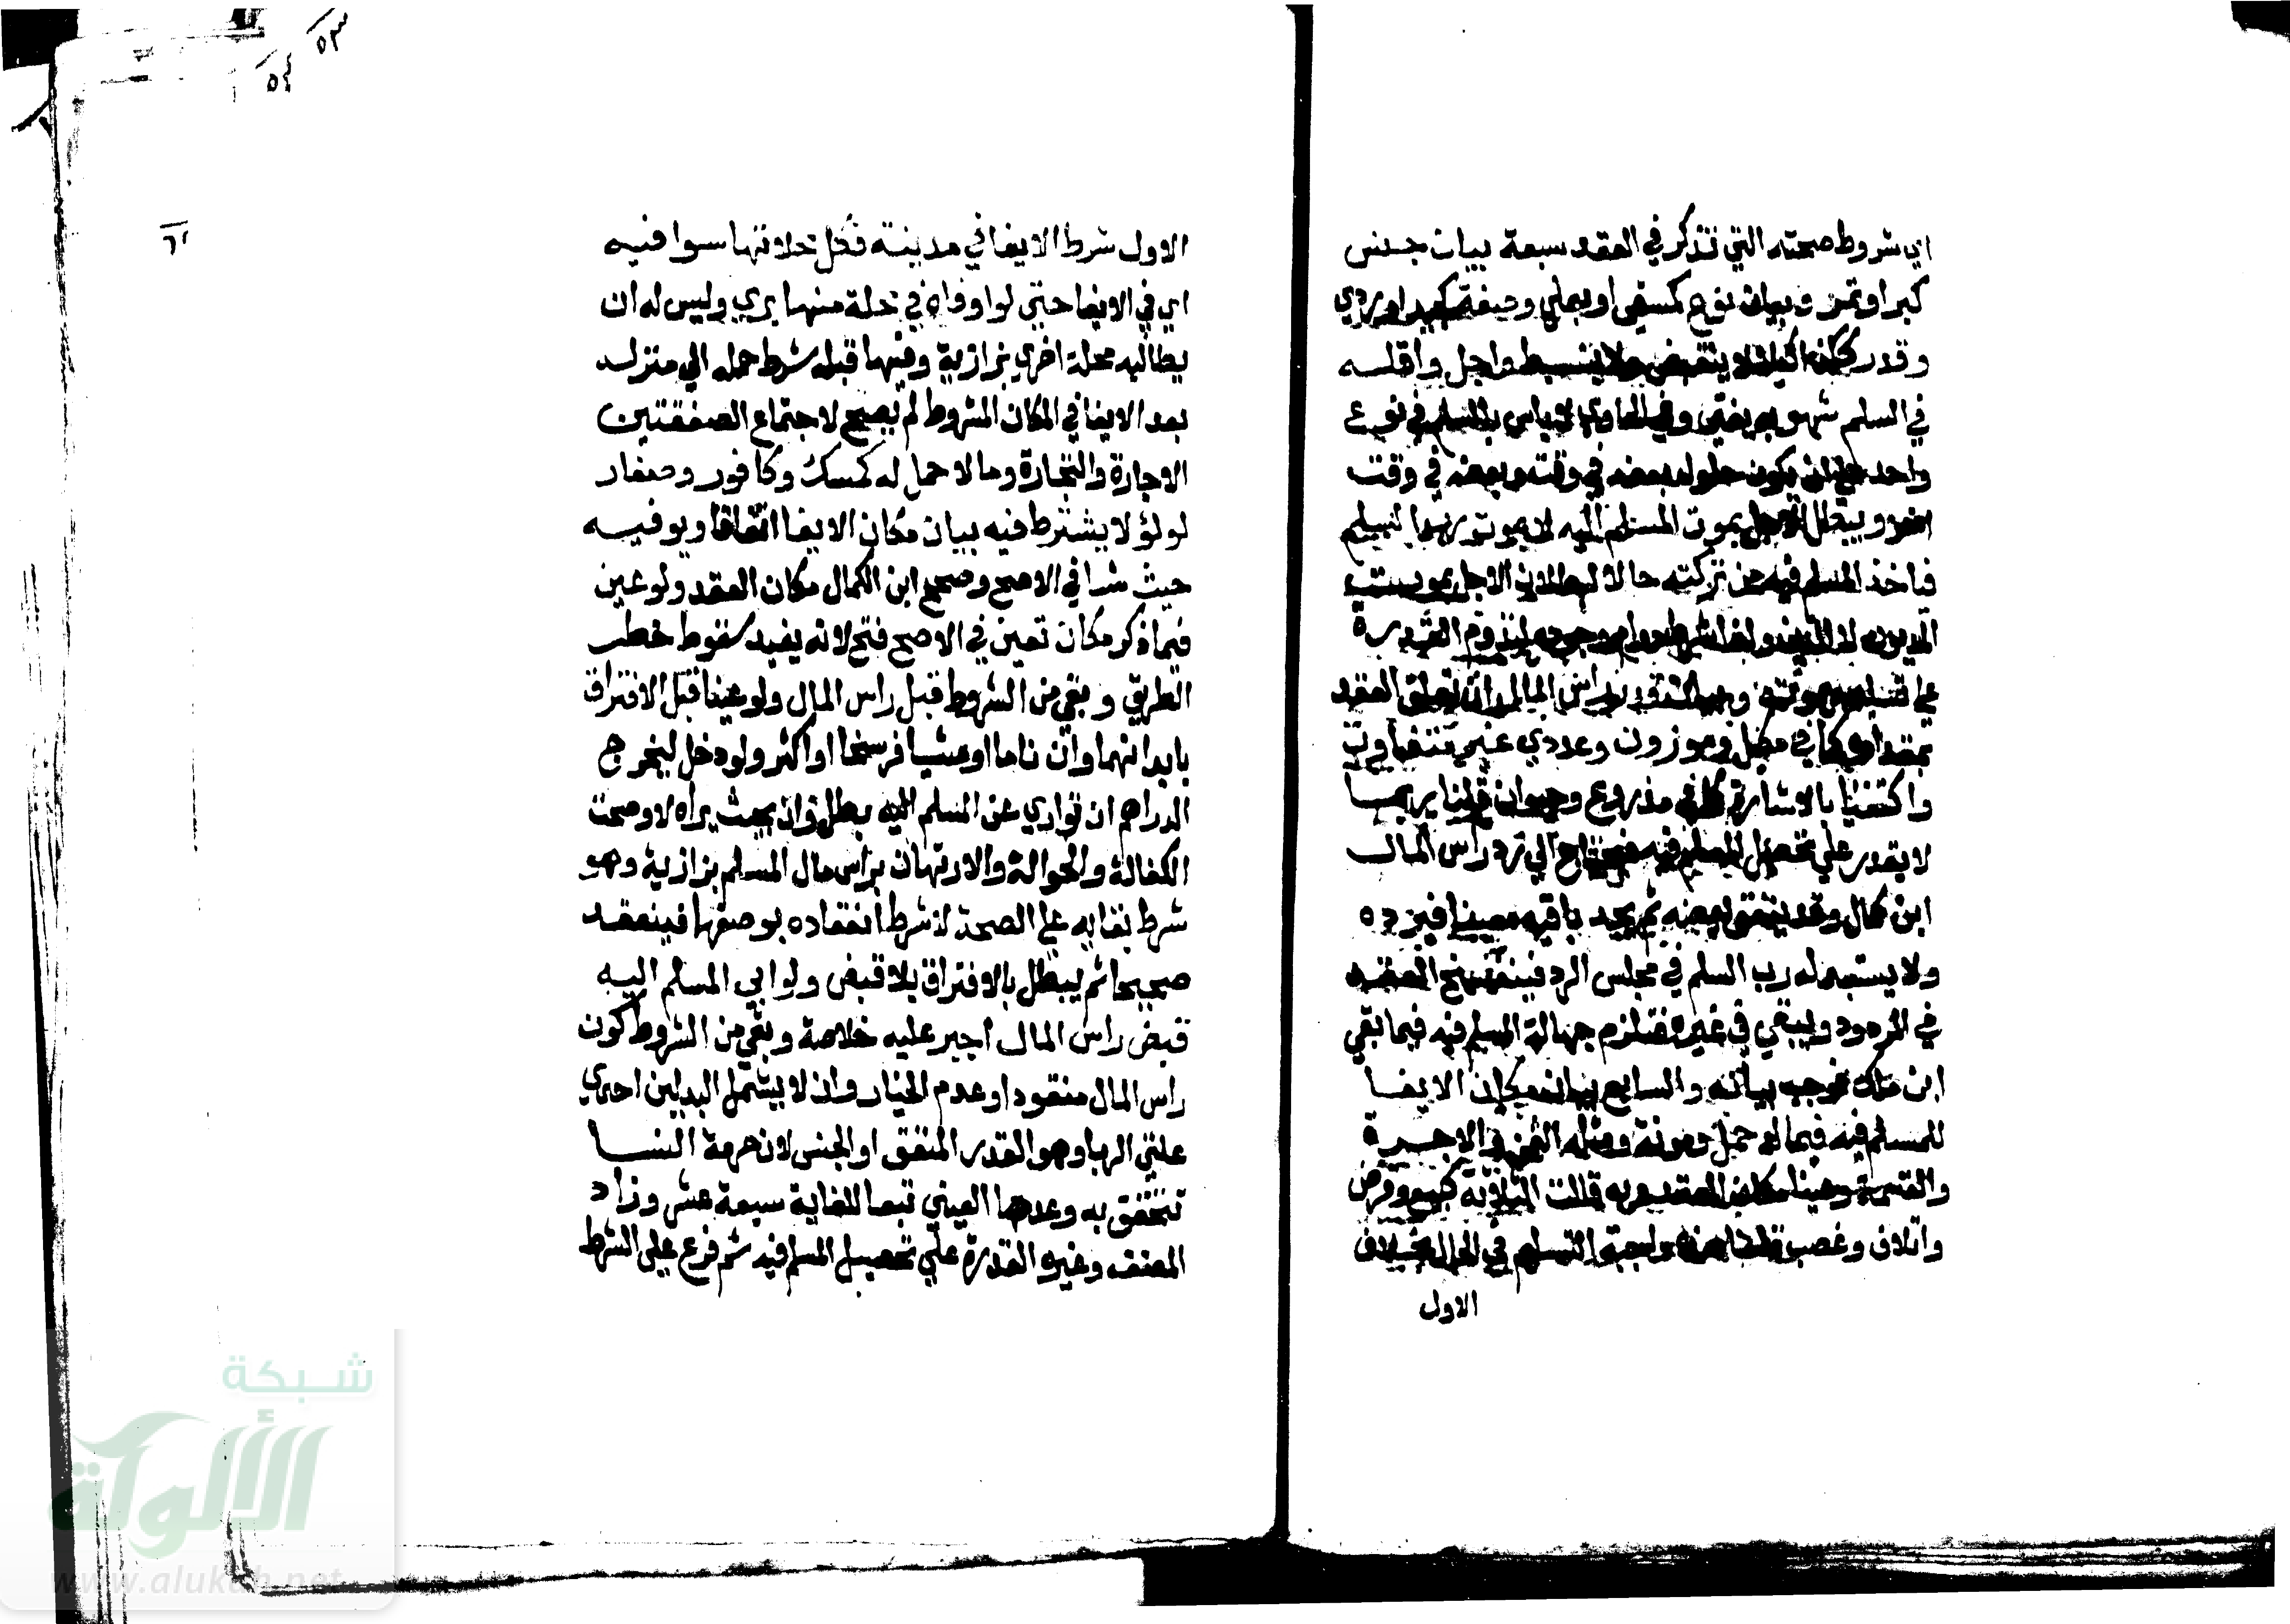 اي شروط صحته التي تذكر في العقد سبعة بيان جنس
كبر او تمر وبيان نوع كمسقي او بعلي وصفة كجيد او ردي
وقدر ككذا كيلا لا ينقبض ولا ينبسط واجل واقله
في السلم شهر به يفتي وفي الحاوي لا باس بالسلم في نوع
واحد علي ان يكون حلول بعضه في وقت وبعضه في وقت
اخر ويبطل الاجل بموت المسلم اليه لا بموت رب السلم
فياخذ المسلم فيه من تركته حالا لبطلان الاجل بموت
المديون لا الداين ولذا شرط دوام وجوده لتدوم القدرة
علي تسليمه بموته وبيان قدر راس المال ان تعلق العقد
بمقداره كما في مكيل وموزون وعددي غير متفاوت
واكتفيا بالاشارة كما في مذروع وحيوان قلنا ربما
لا يقدر علي تحصيل المسلم فيه فيحتاج الي رد راس المال
ابن كمال وقد ينفق بعضه ثم يجد باقيه معيبا فيرده
ولا يستبدله رب السلم في مجلس الرد فينفسخ العقد
في المردود ويبقي في غيره فتلزم جهالة المسلم فيه فيما بقي
ابن ملك فوجب بيانه والسابع بيان مكان الايفا
للمسلم فيه فيما له حمل ومونة ومثله الثمن والاجرة
والقسمة وعينا مكان العقد وبه قالت الثلاثة كبيع وقرض
واتلاف وغصب قلنا هذه واجبة التسليم في الحال بخلاف
الاول
الاول شرط الايفا في مدينة فكل محلاتها سوا فيه
اي في الايفا حتي لو اوفاه في محلة منها بري وليس له ان
يطالبه محلة اخري بزازية وفيها قبله شرط حمله الي منزله
بعد الايفا في المكان المشروط لم يصح لاجتماع الصفقتين
الاجارة والتجارة وما لا حمل له كمسك وكافور وصغار
لولؤ لا يشترط فيه بيان مكان الايفا اتفاقا ويوفيه
حيث شا في الاصح وصحح ابن الكمال مكان العقد ولو عين
فيما ذكر مكان تعين في الاصح فتح لانه يفيد سقوط خطر
الطريق وبقي من الشروط قبل راس المال ولو عينا قبل الافتراق
بابدانهما وان ناما او مشيا فرسخا او اكثر ولو دخل ليخرج
الدراهم ان تواري عن المسلم اليه بطل وان بحيث يراه لا وصحت
الكفالة والحوالة والارتهان براس مال المسلم بزازية وهو
شرط بقايه علي الصحة لا شرط انعقاده بوصفها فينعقد
صحيحا ثم يبطل بالافتراق بلا قبض ولو ابي المسلم اليه
قبض راس المال اجبر عليه خلاصة وبقي من الشروط كون
راس المال منقودا وعدم الخيار وان لا يشتمل البدلين احدي
علتي الربا وهو القدر المتفق او الجنس لان حرمة النسا
تتحقق به وعدها العيني تبعا للغاية سبعة عشر وزاد
المصنف وغيره القدرة علي تحصيل المسلم فيه ثم فرع علي الشرط
٥٣
٥٤
٦١
شبكة
الألوكة
www.alukah.net